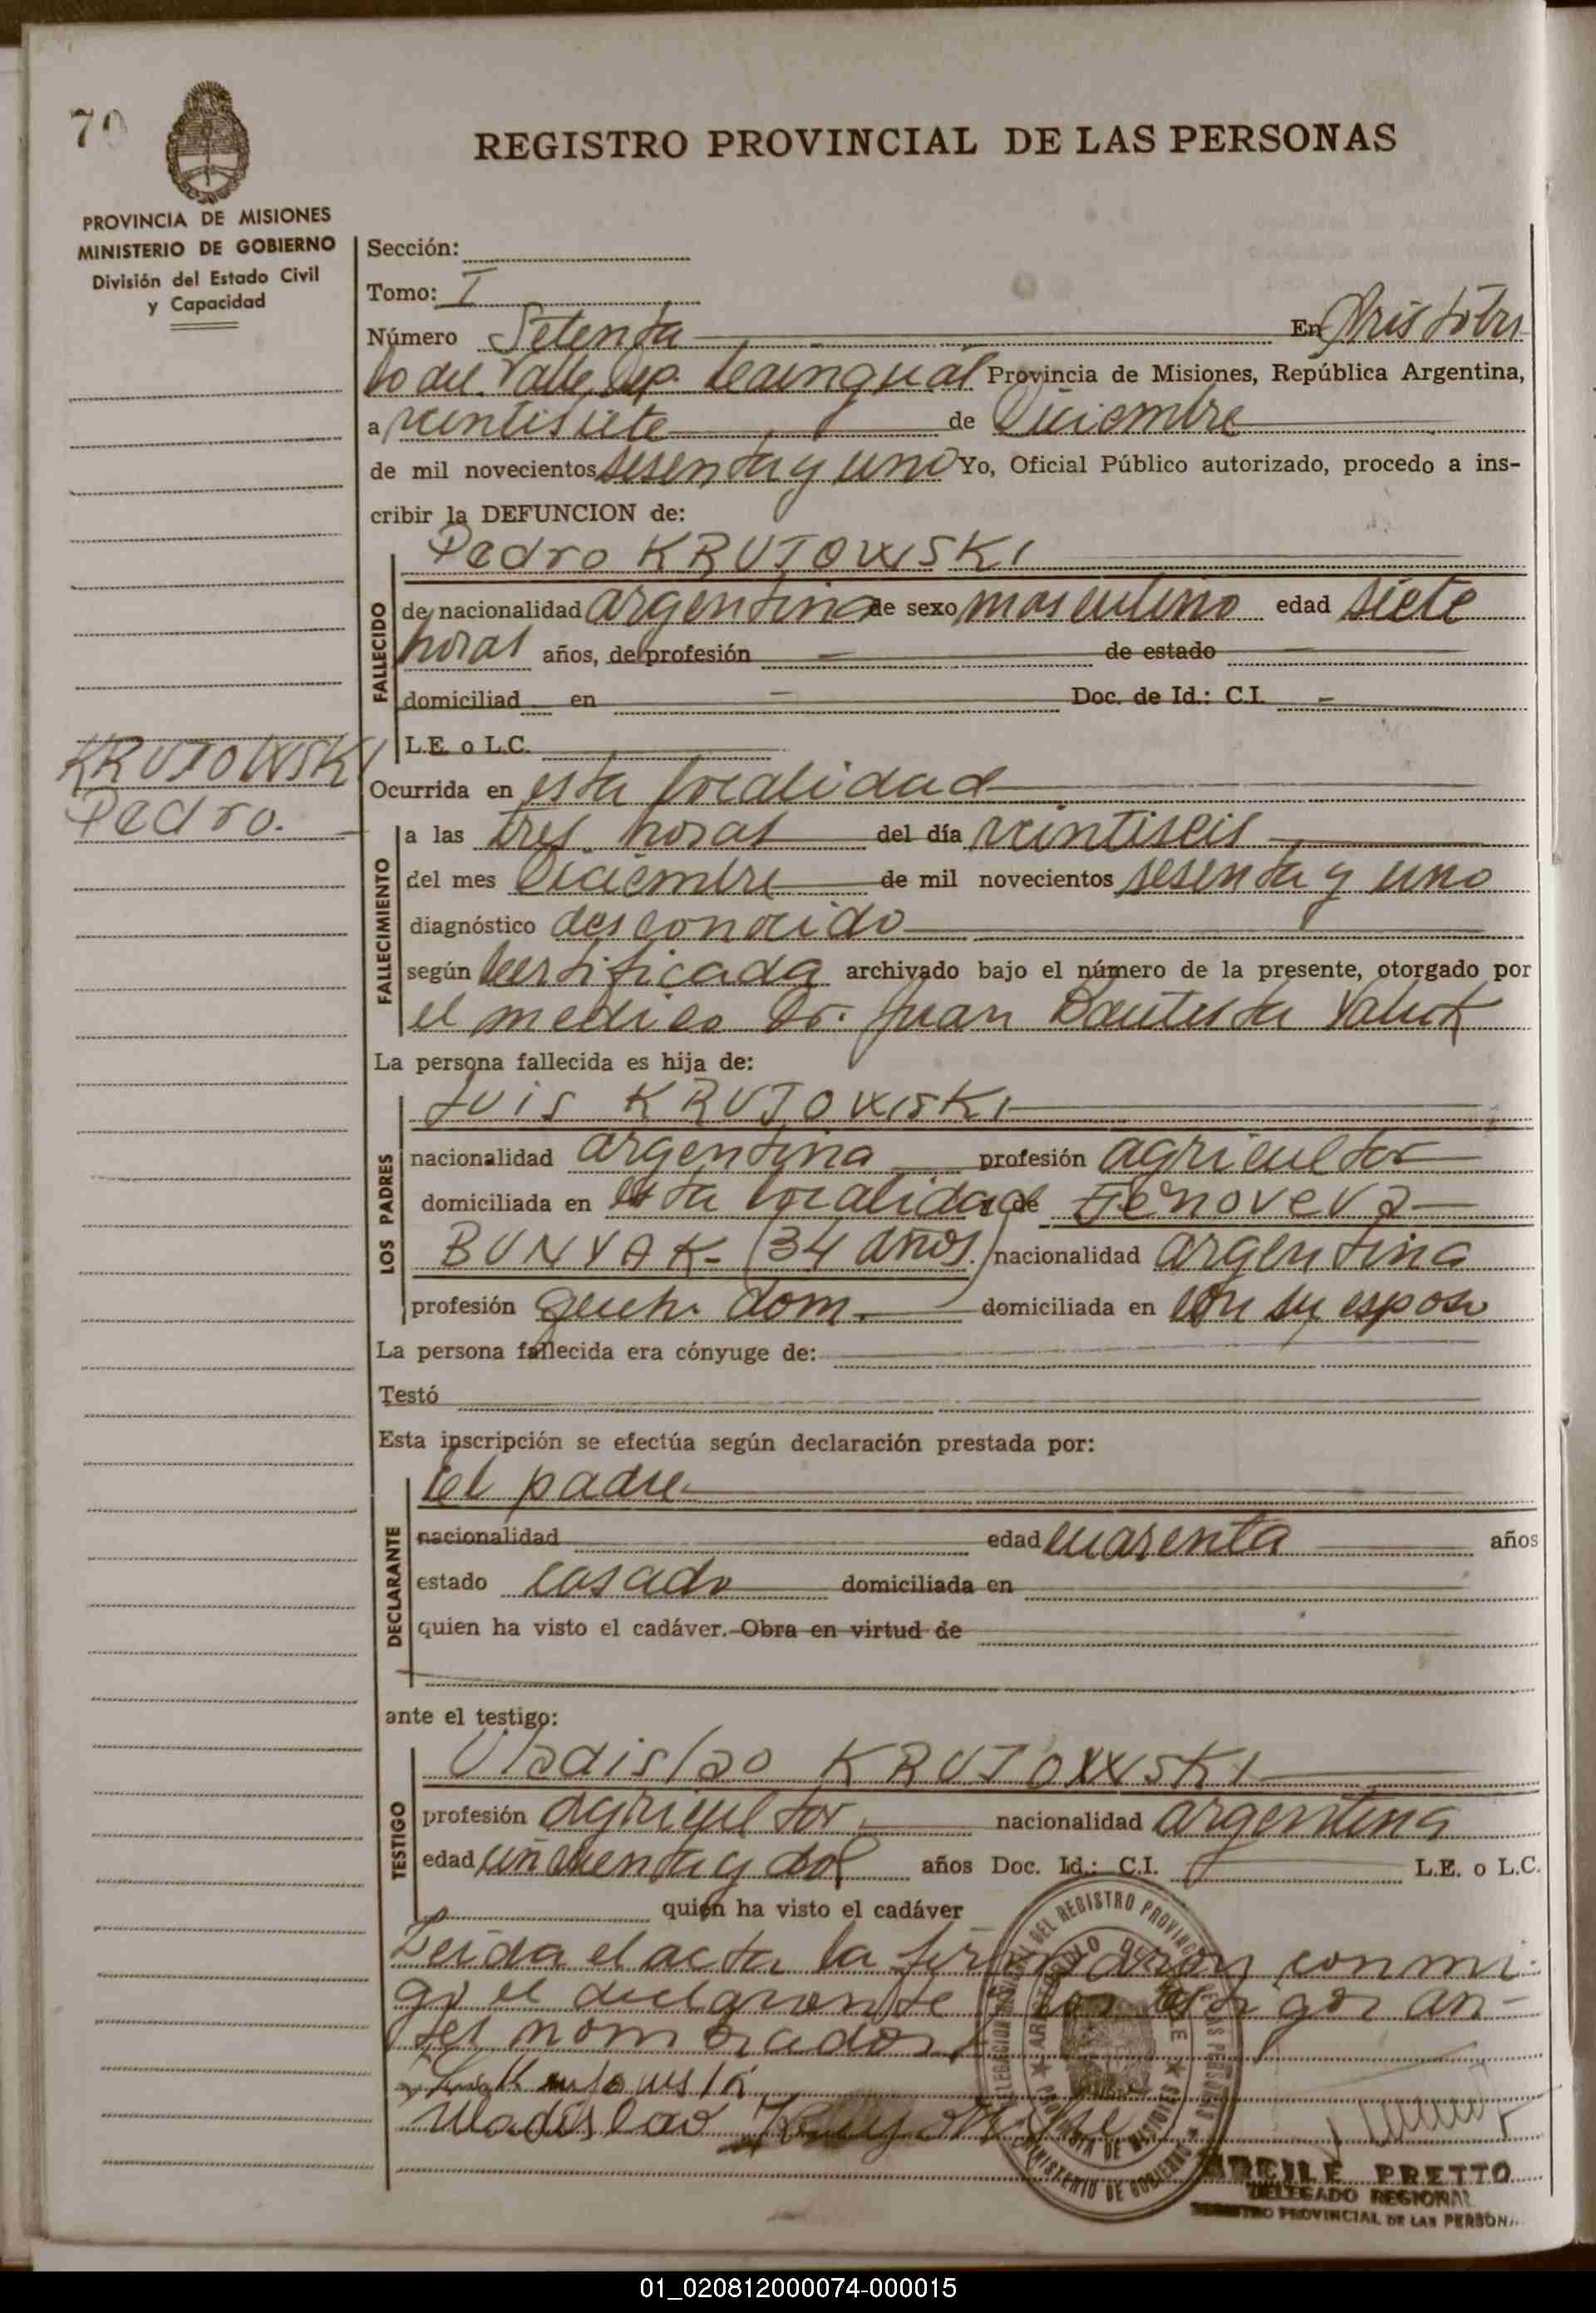 70
REGISTRO PROVINCIAL DE LAS PERSONAS
PROVINCIA DE MISIONES
MINISTERIO DE GOBIERNO
División del Estado Civil
y Capacidad
Sección:
Tomo: I
Número Setenta En Aristóbu
lo del Valle, Dep. Cainguás Provincia de Misiones, República Argentina,
a veintisiete de Diciembre
de mil novecientos sesenta y uno Yo, Oficial Público autorizado, procedo a ins-
cribir la DEFUNCION de:
Pedro KRUJOWSKI
FALLECIDO
de nacionalidad argentina de sexo masculino edad siete
horas años, de profesión de estado
domiciliad en Doc. de Id.: C.I.
L.E. o L.C.
KRUJOWSKI
Pedro.
Ocurrida en esta localidad
FALLECIMIENTO
a las tres horas del día veintiseis
del mes Diciembre de mil novecientos sesenta y uno
diagnóstico desconocido
según certificada archivado bajo el número de la presente, otorgado por
el medico Dr. Juan Bautista
La persona fallecida es hija de:
LOS PADRES
Luis KRUJOWSKI
nacionalidad argentina profesión agricultor
domiciliada en esta localidad de Genoveva
BUNYAK- (34 años.) nacionalidad argentina
profesión dom. domiciliada en con su esposo
La persona fallecida era cónyuge de:
Testó
Esta inscripción se efectúa según declaración prestada por:
DECLARANTE
el padre
nacionalidad edad cuarenta años
estado casado domiciliada en
quien ha visto el cadáver. Obra en virtud de
ante el testigo:
TESTIGO
Vladislao KRUJOWSKI
profesión agricultor nacionalidad argentina
edad cincuenta y dos años Doc. Id.: C.I. L.E. o L.C.
quien ha visto el cadáver
Leida el acta la firmaron conmi-
go el declarante testigos an-
tes nombrados
Vladislao
DELEGACION DEL REGISTRO PROVINCIAL DE LAS PERSONAS
ARISTOBULO DEL VALLE
PROVINCIA DE MISIONES
MINISTERIO DE GOBIERNO
PRETTO
DELEGADO REGIONAL
REGISTRO PROVINCIAL DE LAS PERSONAS
01_020812000074-000015